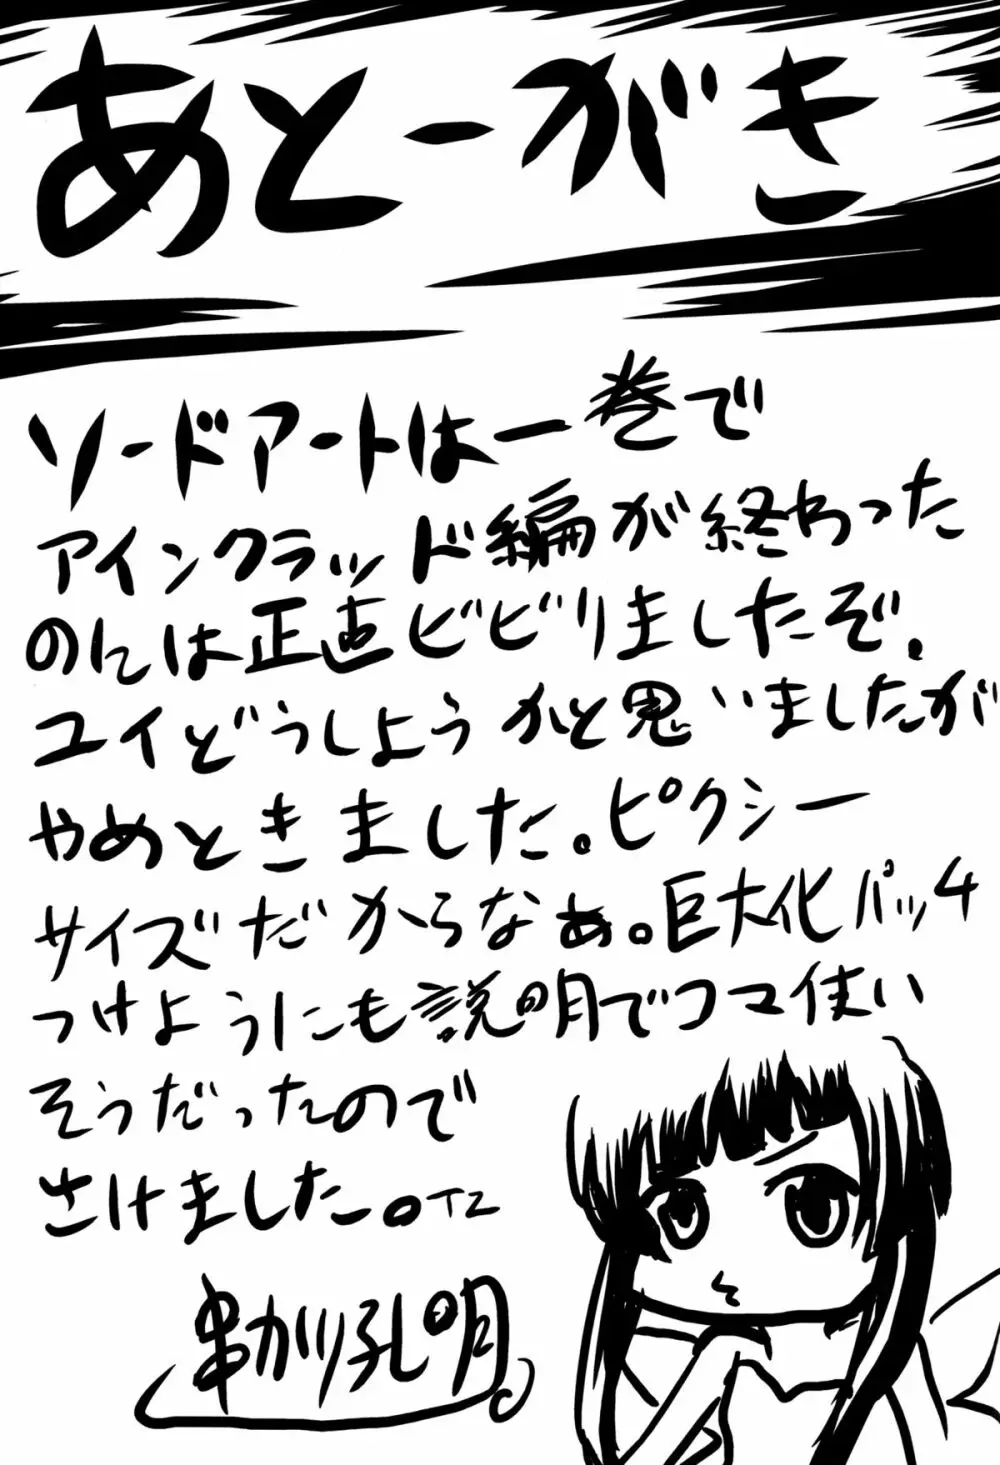 あとーがき
ソードアートは一巻で
アインクラッド編が終わった
のには正直ビビリましたぞ。
ユイどうしようかと思いましたが
やめときました。ピクシー
サイズだからなぁ。巨大化パッチ
つけようにも説明でコマ使い
そうだったので
さけました。TZ
串かつり孔明。